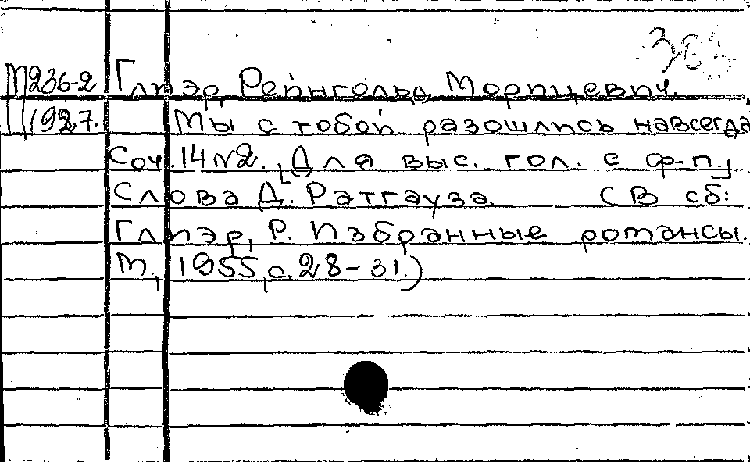 М236-2 Глиэр, Рейнгольд Морицевич.
1927. Мы с тобой разошлись навсегда
Соч. 14 №2. [Для выс. гол. с ф-п]
Слова Д. Ратгауза. (В сб:
Глиэр, Р. Избранные романсы.
М., 1955, с. 28-31.)